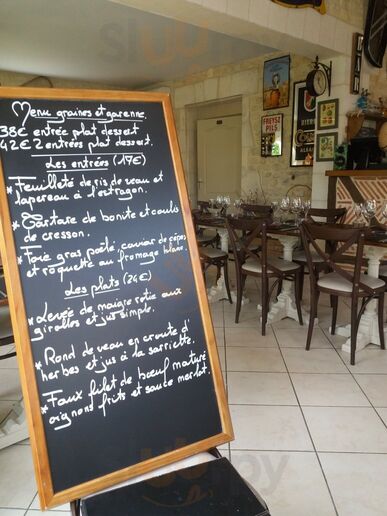 Menu graines et garenne.
38€ entrée plat dessert
42€ 2 entrées plat dessert.
Les entrées (17€)
* Feuilleté de ris de veau et
lapereau à l'estragon.
* Tartare de bonite et coulis
de cresson.
* Foie gras poêlé, caviar de cèpes
et roquette au fromage blanc.
Les plats (24€)
* Levée de maigre rotie aux
girolles et jus simple.
* Rond de veau en croute d'
herbes et jus à la sarriette.
* Faux filet de bœuf maturé
oignons frits et sauce merlot.
FREYSZ
PILS